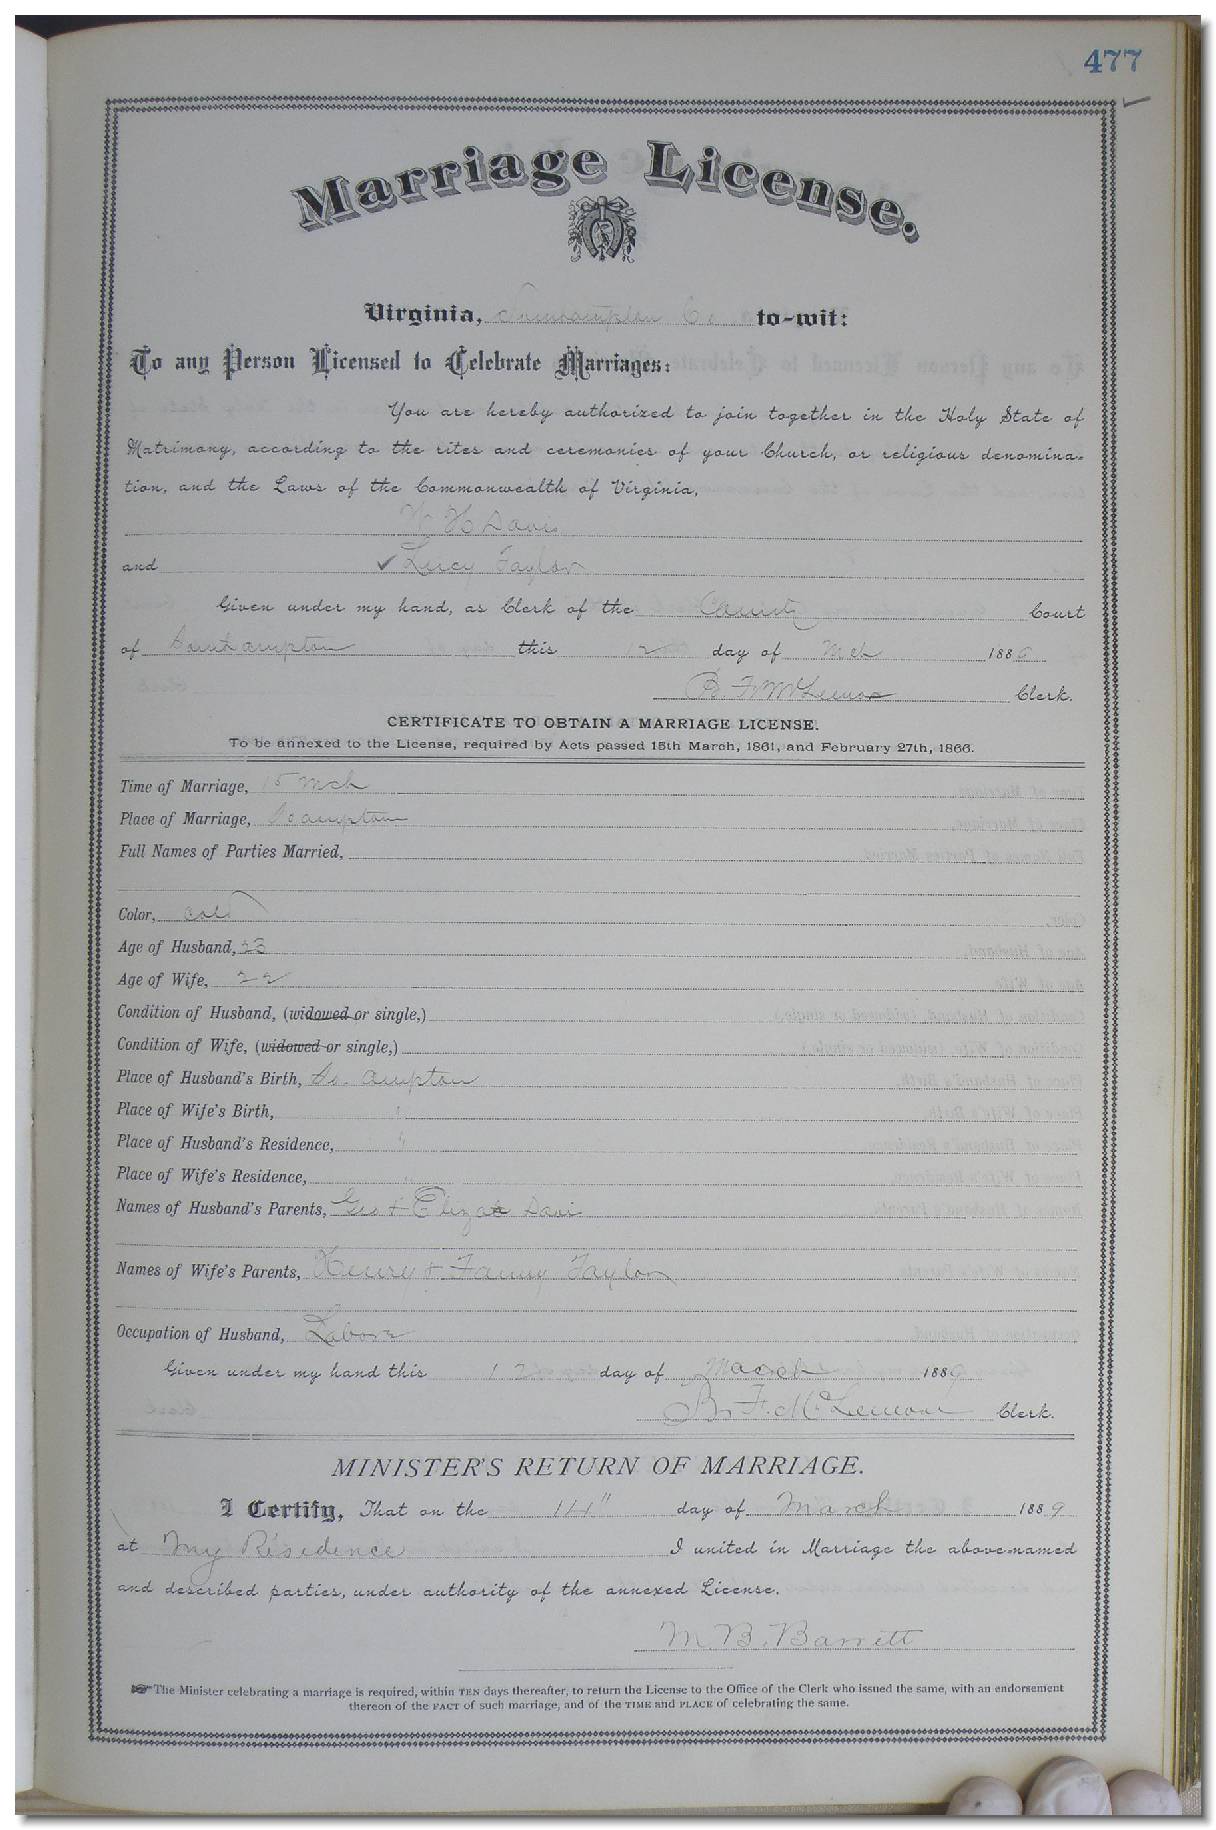 477
Marriage License.
Virginia, Southampton Co to-wit:
To any Person Licensed to Celebrate Marriages:
You are hereby authorized to join together in the Holy State of
Matrimony, according to the rites and ceremonies of your Church, or religious denomina-
tion, and the Laws of the Commonwealth of Virginia,
H Davis
and Lucy Taylor
Given under my hand, as Clerk of the County Court
of Southampton this 12 day of Mch 1889
B F McLemore Clerk.
CERTIFICATE TO OBTAIN A MARRIAGE LICENSE.
To be annexed to the License, required by Acts passed 15th March, 1861, and February 27th, 1866.
Time of Marriage, 15 Mch
Place of Marriage, So ampton
Full Names of Parties Married,
Color, Cold
Age of Husband, 23
Age of Wife, 22
Condition of Husband, (widowed or single,)
Condition of Wife, (widowed or single,)
Place of Husband's Birth, So. ampton
Place of Wife's Birth, "
Place of Husband's Residence, "
Place of Wife's Residence, "
Names of Husband's Parents, Geo + Eliza Davis
Names of Wife's Parents, Henry + Fanny Taylor
Occupation of Husband, Labore
Given under my hand this 12 day of March 1889
B. F. McLemore Clerk.
MINISTER'S RETURN OF MARRIAGE.
I Certify, That on the 14" day of March 1889
at My Residence I united in Marriage the above-named
and described parties, under authority of the annexed License.
M. B. Barrett
The Minister celebrating a marriage is required, within TEN days thereafter, to return the License to the Office of the Clerk who issued the same, with an endorsement
thereon of the FACT of such marriage, and of the TIME and PLACE of celebrating the same.